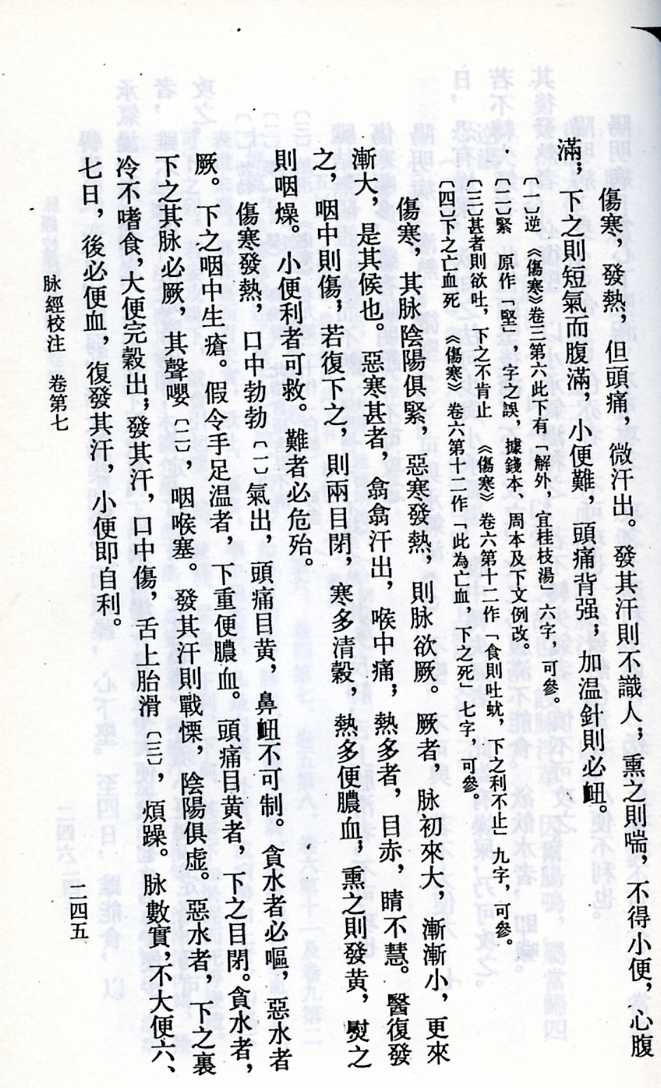 傷寒，發熱，但頭痛，微汗出。發其汗則不識人；熏之則喘，不得小便，心腹
滿；下之則短氣而腹滿，小便難，頭痛背强；加温針則必衄。
〔一〕逆　《傷寒》卷三第六此下有「解外，宜桂枝湯」六字，可參。
〔二〕緊　原作「堅」，字之誤，據錢本、周本及下文例改。
〔三〕甚者則欲吐，下之不肯止　《傷寒》卷六第十二作「食則吐蚘，下之利不止」九字，可參。
〔四〕下之亡血死　《傷寒》卷六第十二作「此為亡血，下之死」七字，可參。
傷寒，其脉陰陽俱緊，惡寒發熱，則脉欲厥。厥者，脉初來大，漸漸小，更來
漸大，是其候也。惡寒甚者，翕翕汗出，喉中痛；熱多者，目赤，睛不慧。醫復發
之，咽中則傷，若復下之，則兩目閉，寒多清穀，熱多便膿血；熏之則發黄，熨之
則咽燥。小便利者可救。難者必危殆。
傷寒發熱，口中勃勃〔一〕氣出，頭痛目黄，鼻衄不可制。貪水者必嘔，惡水者
厥。下之咽中生瘡。假令手足温者，下重便膿血。頭痛目黄者，下之目閉。貪水者，
下之其脉必厥，其聲嚶〔二〕，咽喉塞。發其汗則戰慄，陰陽俱虚。惡水者，下之裏
冷不嗜食，大便完穀出；發其汗，口中傷，舌上胎滑〔三〕，煩躁。脉數實，不大便六、
七日，後必便血，復發其汗，小便即自利。
脉經校注　卷第七
二四五